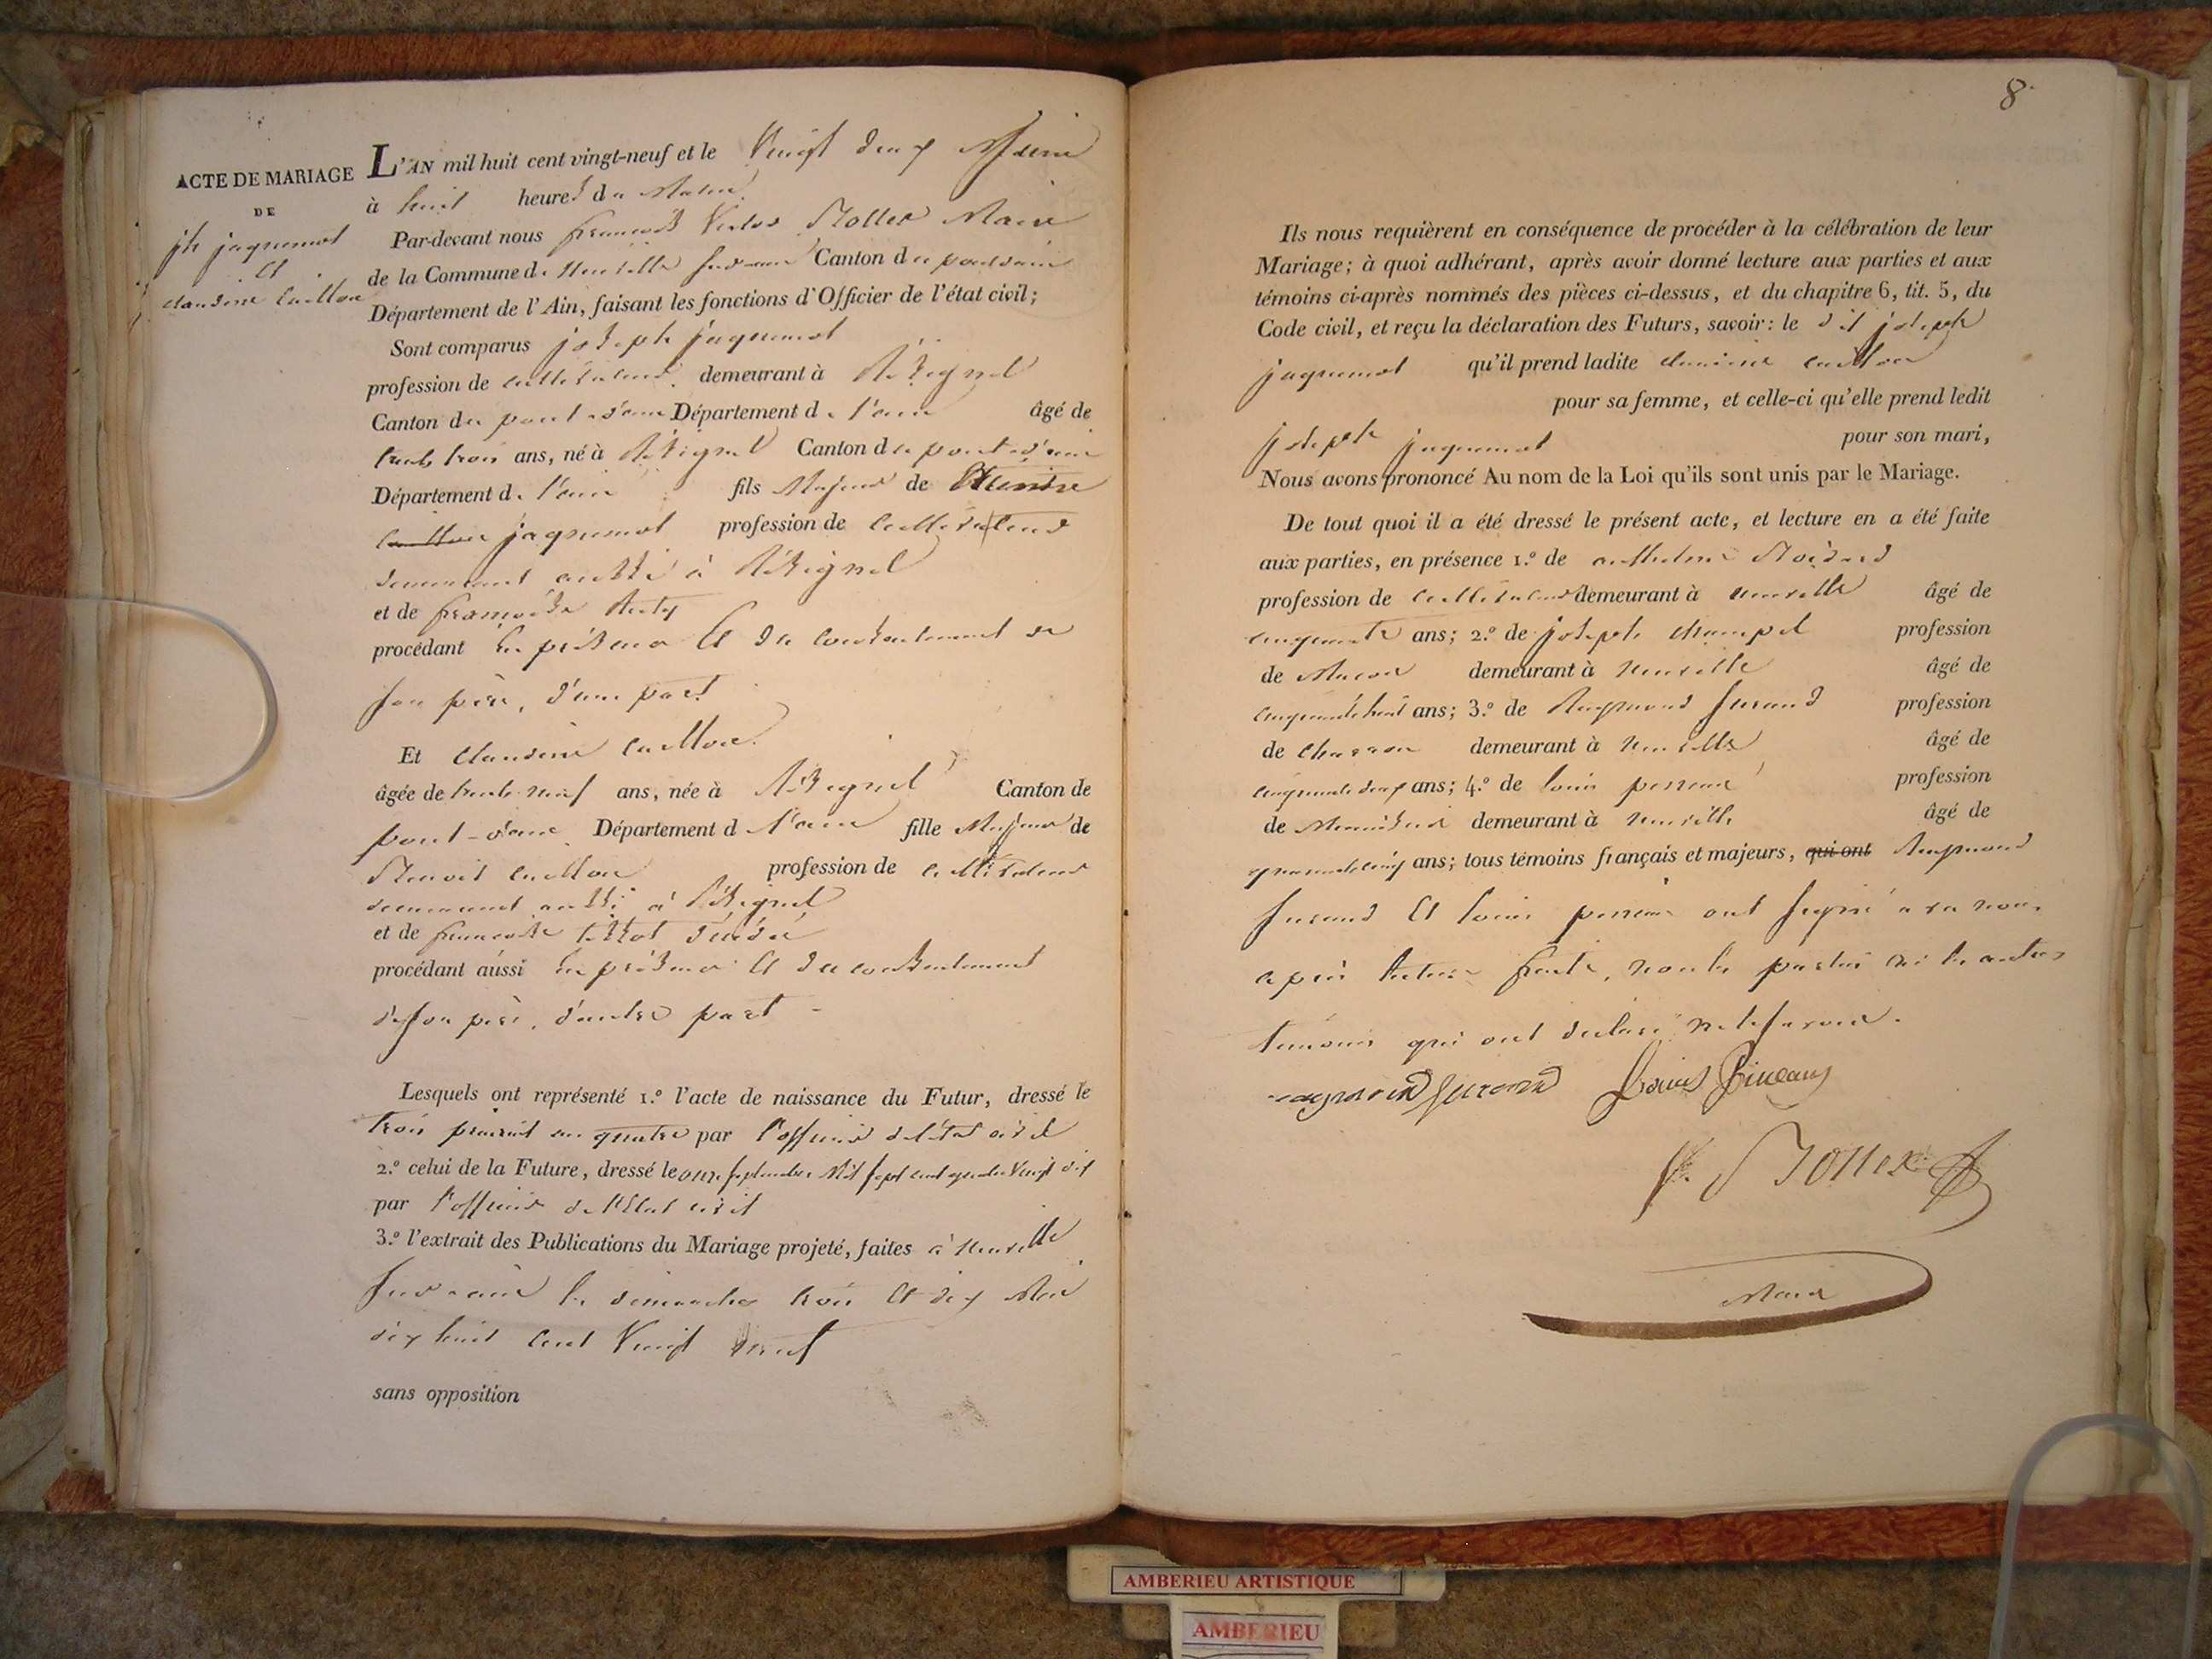 ACTE DE MARIAGE
DE
jh jaquemot
et
claudine cuillon
L'AN mil huit cent vingt-neuf et le Vingt deux
à huit heures du Matin
Par-devant nous françois Victor Maire
de la Commune de neuville sur ain Canton du pontdain
Département de l'Ain, faisant les fonctions d'Officier de l'état civil;
Sont comparus joseph jaquemot
profession de cultivateur demeurant à
Canton du pont-d'ain Département de l'ain âgé de
trente trois ans, né à Canton du pont-d'ain
Département de l'ain fils Majeur de
jaquemot profession de cultivateur
demeurant aussi à
et de françoise
procédant En présence Et du Consentement de
son père, d'une part
Et claudine cuillon
âgée de trente neuf ans, née à Canton de
pont-d'ain Département de l'ain fille Majeure de
Benoit cuillon profession de cultivateur
demeurant aussi à
et de françoise décédée
procédant aussi En présence Et du consentement
de son père, d'autre part
Lesquels ont représenté 1.º l'acte de naissance du Futur, dressé le
trois prairial an quatre par l'officier de l'état civil
2.º celui de la Future, dressé le onze septembre Mil sept cent quatre Vingt dix
par l'officier de l'Etat civil
3.º l'extrait des Publications du Mariage projeté, faites à neuville
sur ain les dimanches trois Et dix Mai
dix huit Cent Vingt neuf
sans opposition
8.
Ils nous requièrent en conséquence de procéder à la célébration de leur
Mariage; à quoi adhérant, après avoir donné lecture aux parties et aux
témoins ci-après nommés des pièces ci-dessus, et du chapitre 6, tit. 5, du
Code civil, et reçu la déclaration des Futurs, savoir: le dit joseph
jaquemot qu'il prend ladite claudine cuillon
pour sa femme, et celle-ci qu'elle prend ledit
joseph jaquemot pour son mari,
Nous avons prononcé Au nom de la Loi qu'ils sont unis par le Mariage.
De tout quoi il a été dressé le présent acte, et lecture en a été faite
aux parties, en présence 1.º de anthelme
profession de cultivateur demeurant à neuville âgé de
cinquante ans; 2.º de joseph profession
de Maçon demeurant à neuville âgé de
cinquante huit ans; 3.º de Raymond profession
de charron demeurant à neuville âgé de
cinquante deux ans; 4.º de louis profession
de Menuisier demeurant à neuville âgé de
quarante cinq ans; tous témoins français et majeurs, qui ont Raymond
Et louis ont signé avec nous
après lecture faite, non les parties ni les autres
témoins qui ont déclaré ne le savoir.
Maire
AMBERIEU ARTISTIQUE
AMBERIEU